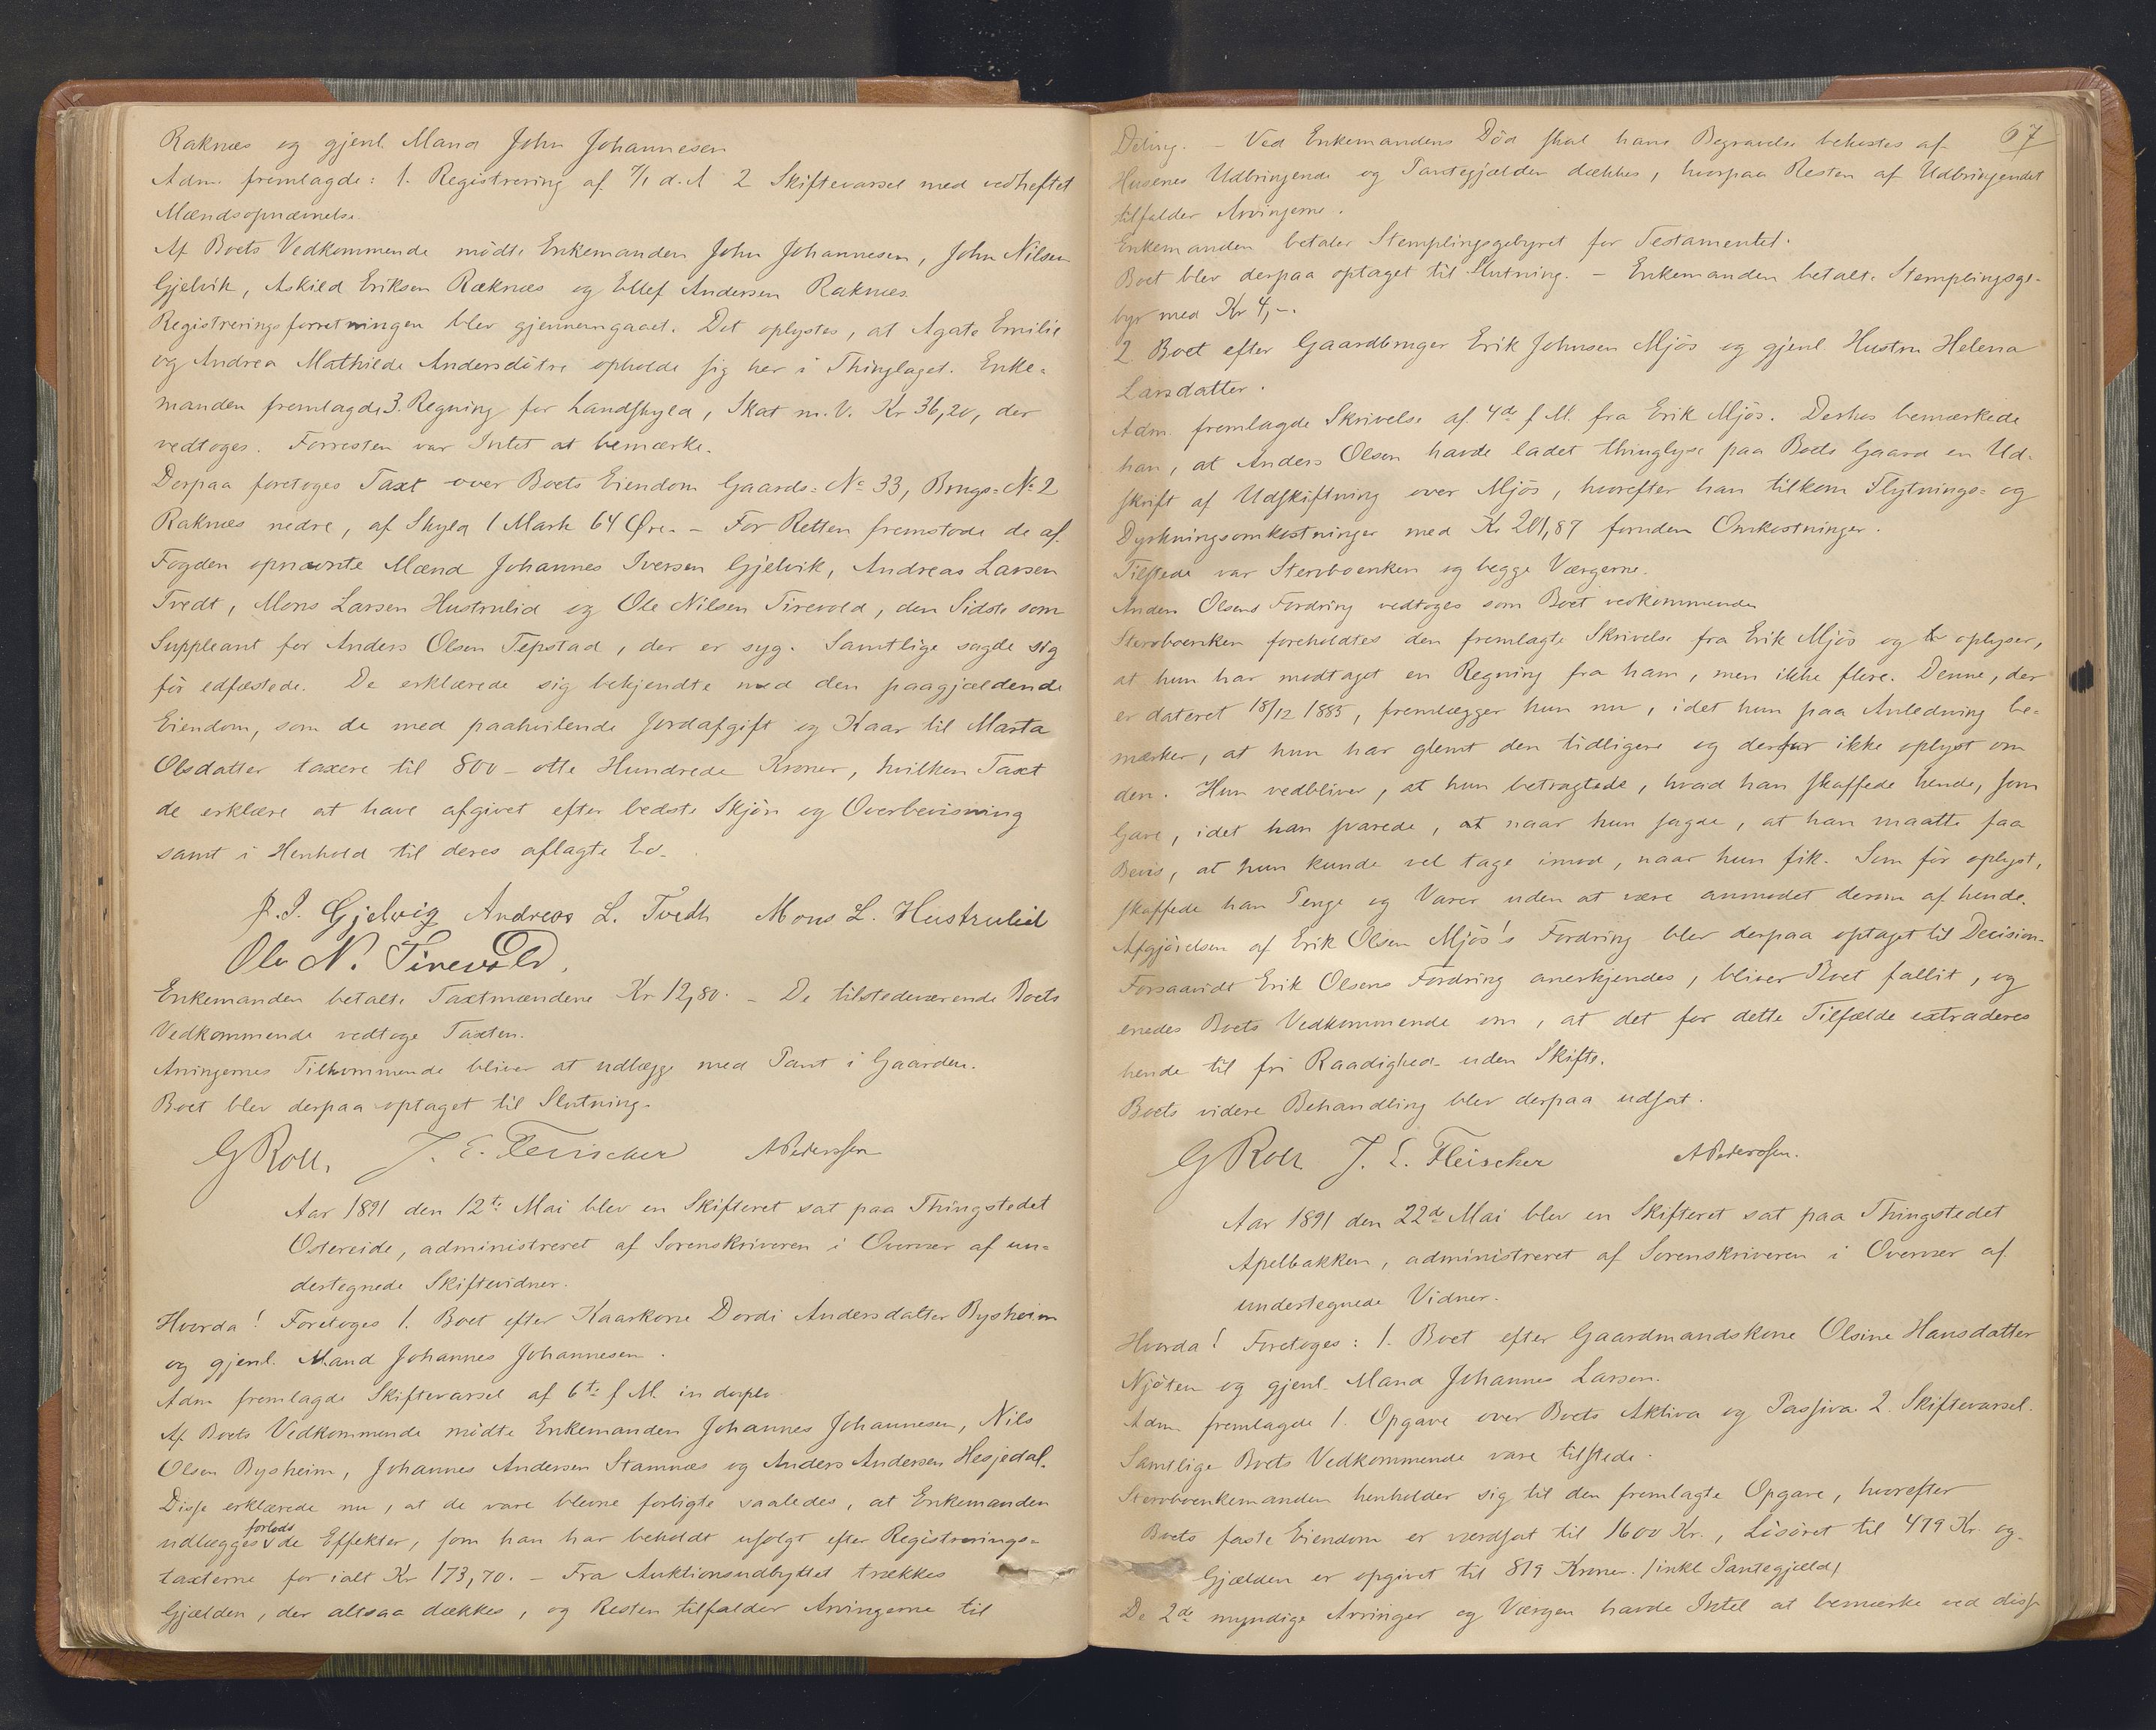 Raknæs og gjenl. Mand John Johannesen
Adm. fremlagde: 1. Registrering af 7/1 d. A 2 Skiftevarsel med vedheftet
Mændsopnævnelse
Af Boets Vedkommende mødte Enkemanden John Johannesen, John Nilsen
Gjelvik, Askild Eriksen Raknæs og Ellef Andersen Raknæs.
Registreringsforretningen blev gjennemgaaet. Det oplystes, at Agate Emilie
og Andrea Mathilde Andersdøtre opholde sig her i Thinglaget. Enke-
manden fremlagde 3. Regning for Landskyld, Skat m. V. Kr 36,20, der
vedtoges. Forresten var Intet at bemærke.
Derpaa foretoges Taxt over Boets Eiendom Gaards-No 33, Brugs-No 2
Raknæs nedre, af Skyld 1 Mark 64 Øre. - For Retten fremstode de af
Fogden opnævnte Mænd Johannes Iversen Gjelvik, Andreas Larsen
Tvedt, Mons Larsen Hustrulid og Ole Nilsen Tirevold, den Sidste som
Suppleant for Anders Olsen Tepstad, der er syg. Samtlige sagde sig
før edfæstede. De erklærede sig bekjendte med den paagjældende
Eiendom, som de med paahvilende Jordafgift og Kaar til Marta
Olsdatter taxere til 800 - otte Hundrede Kroner, hvilken Taxt
de erklære at have afgivet efter bedste Skjøn og Overbevisning
samt i Henhold til deres aflagte Ed.
J. I. Gjelvig Andreas L. Tvedt Mons L. Hustrulid
Ole N. Tirevold.
Enkemanden betalte Taxtmændene Kr 12,80. - De tilstedeværende Boets
Vedkommende vedtoge Taxten.
Arvingernes Tilkommende bliver at udlægge med Pant i Gaarden.
Boet blev derpaa optaget til Slutning.
G Roll. J. E. Fleischer A Pedersen
Aar 1891 den 12te Mai blev en Skifteret sat paa Thingstedet
Ostereide, administreret af Sorenskriveren i Overvær af un-
dertegnede Skiftevidner.
Hvorda! Foretoges 1. Boet efter Kaarkone Dordi Andersdatter Bysheim
og gjenl. Mand Johannes Johannesen.
Adm fremlagde Skiftevarsel af 6te f M. in duplo.
Af Boets Vedkommende mødte Enkemanden Johannes Johannesen, Nils
Olsen Bysheim, Johannes Andersen Stamnæs og Anders Andersen Hesjedal.
Disse erklærede nu, at de vare blevne forligte saaledes, at Enkemanden
udlægges forlods de Effekter, som han har beholdt usolgt efter Registrerings-
taxterne for ialt Kr 173,70. - Fra Auktionsudbyttet trækkes
Gjælden, der altsaa dækkes, og Resten tilfalder Arvingerne til
67
Deling. - Ved Enkemandens Død skal hans Begravelse bekostes af
Husenes Udbringende og Pantegjælden dækkes, hvorpaa Resten af Udbringendet
tilfalder Arvingerne.
Enkemanden betaler Stemplingsgebyret for Testamentet.
Boet blev derpaa optaget til Slutning. - Enkemanden betalte Stemplingsge-
byr med Kr 4,-.
2 Boet efter Gaardbruger Erik Johnsen Mjøs og gjenl Hustru Helena
Larsdatter.
Adm. fremlagde Skrivelse af 4de f M. fra Erik Mjøs. Derhos bemærkede
han, at Anders Olsen havde ladet thinglyse paa Boets Gaard en Ud-
skrift af Udskiftning over Mjøs, hvorefter han tilkom Flytnings- og
Dyrkningsomkostninger med Kr 201,87 foruden Omkostninger.
Tilstede var Stervboenken og begge Værgerne.
Anders Olsens Fordring vedtoges som Boet vedkommende
Stervboenken foreholdtes den fremlagte Skrivelse fra Erik Mjøs og oplyser,
at hun har modtaget en Regning fra ham, men ikke flere. Denne, der
er dateret 18/12 1885, fremlægger hun nu, idet hun paa Anledning be-
mærker, at hun har glemt den tidligere og derfor ikke oplyst om
den. Hun vedbliver, at hun betragtede, hvad han skaffede hende, som
Gave, idet han svarede, at naar hun sagde, at han maatte faa
Bevis, at hun kunde vel tage imod, naar hun fik. Som før oplyst,
skaffede han Penge og Varer uden at være anmodet derom af hende.
Afgjørelsen af Erik Olsen Mjøs's Fordring blev derpaa optaget til Decision.
Forsaavidt Erik Olsens Fordring anerkjendes, bliver Boet fallit, og
enedes Boets Vedkommende om, at det for dette Tilfælde extraderes
hende til fri Raadighed uden Skifte.
Boets videre Behandling blev derpaa udsat.
G Roll J. E. Fleischer A Pedersen.
Aar 1891 den 22de Mai blev en Skifteret sat paa Thingstedet
Apelbakken, administreret af Sorenskriveren i Overvær af
undertegnede Vidner.
Hvorda! Foretoges: 1. Boet efter Gaardmandskone Olsine Hansdatter
Njøten og gjenl. Mand Johannes Larsen.
Adm fremlagde 1. Opgave over Boets Aktiva og Passiva 2. Skiftevarsel.
Samtlige Boets Vedkommende vare tilstede.
Stervboenkemanden henholder sig til den fremlagte Opgave, hvorefter
Boets faste Eiendom er værdsat til 1600 Kr., Løsøret til 479 Kr. og
Gjælden er opgivet til 819 Kroner. /inkl Pantegjæld/
De 2de myndige Arvinger og Værgen havde Intet at bemærke ved disse